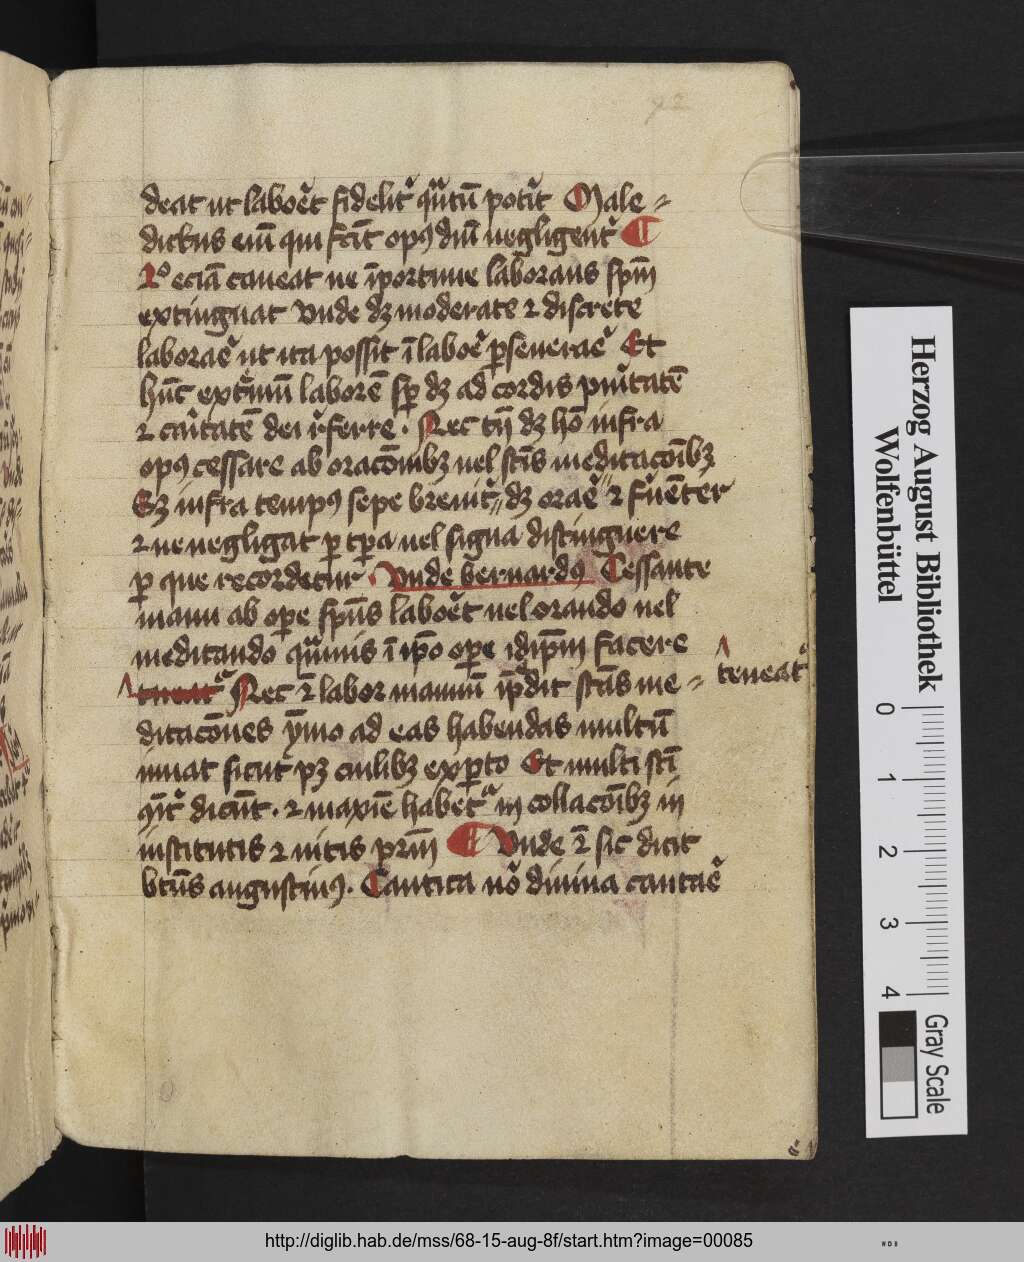 42
deat ut laboret fidelit' q̄ntū potit' Male-
dictus eni qui fcit opꝰ dm̄ negligent' ¶
Io eciā caueat ne īportune laborans spm̄
extinguat Vnde dꝫ moderate ⁊ discrete
laborae' ut ita possit ī laboe' ꝑseuerae' Et
hūc extimū laborē sꝑ dꝫ ad cordis puritatē
⁊ caritatē dei r'ferre. Nec tn̄ dꝫ hō infra
opꝰ cessare ab oracōnibꝫ uel sctīs meditacōibꝫ
Sꝫ infra tempꝰ sepe breuit' dꝫ orae' ⁊ fruēter
⁊ ne negligat ꝑ tꝑa uel signa distinguere
ꝑ que recordetur. Vnde bernardꝰ Cessante
manu ab oꝑe spūs laboret uel orando uel
meditando q̄muis ī ipo oꝑe idipm̄ facere
tneat' Nec ē labor manuū īpedit sctās me-
teneat'
ditacōnes ymo ad eas habendas multū
iuuat sicut pꝫ cuilibꝫ exꝑto Et multi sctī
q'it' dicūt. ⁊ maxīe habet' in collacōibꝫ in
institutis ⁊ uitis prm̄ ¶ Vnde ē sic dicit
btūs augustinꝰ. Cantica uo' diuina cantae'
Herzog August Bibliothek
Wolfenbüttel
0 1 2 3 4
Gray Scale
http://diglib.hab.de/mss/68-15-aug-8f/start.htm?image=00085
WDB